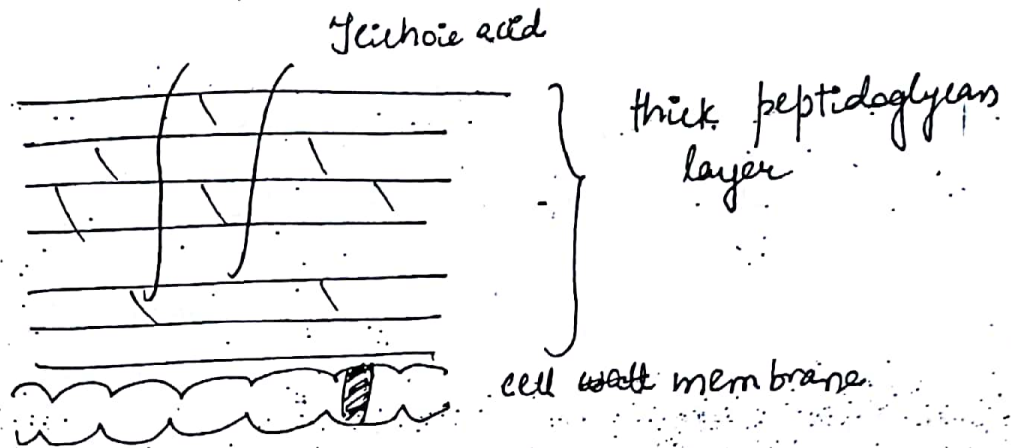 Teichoic acid
thick peptidoglycan
layer
cell wall membrane